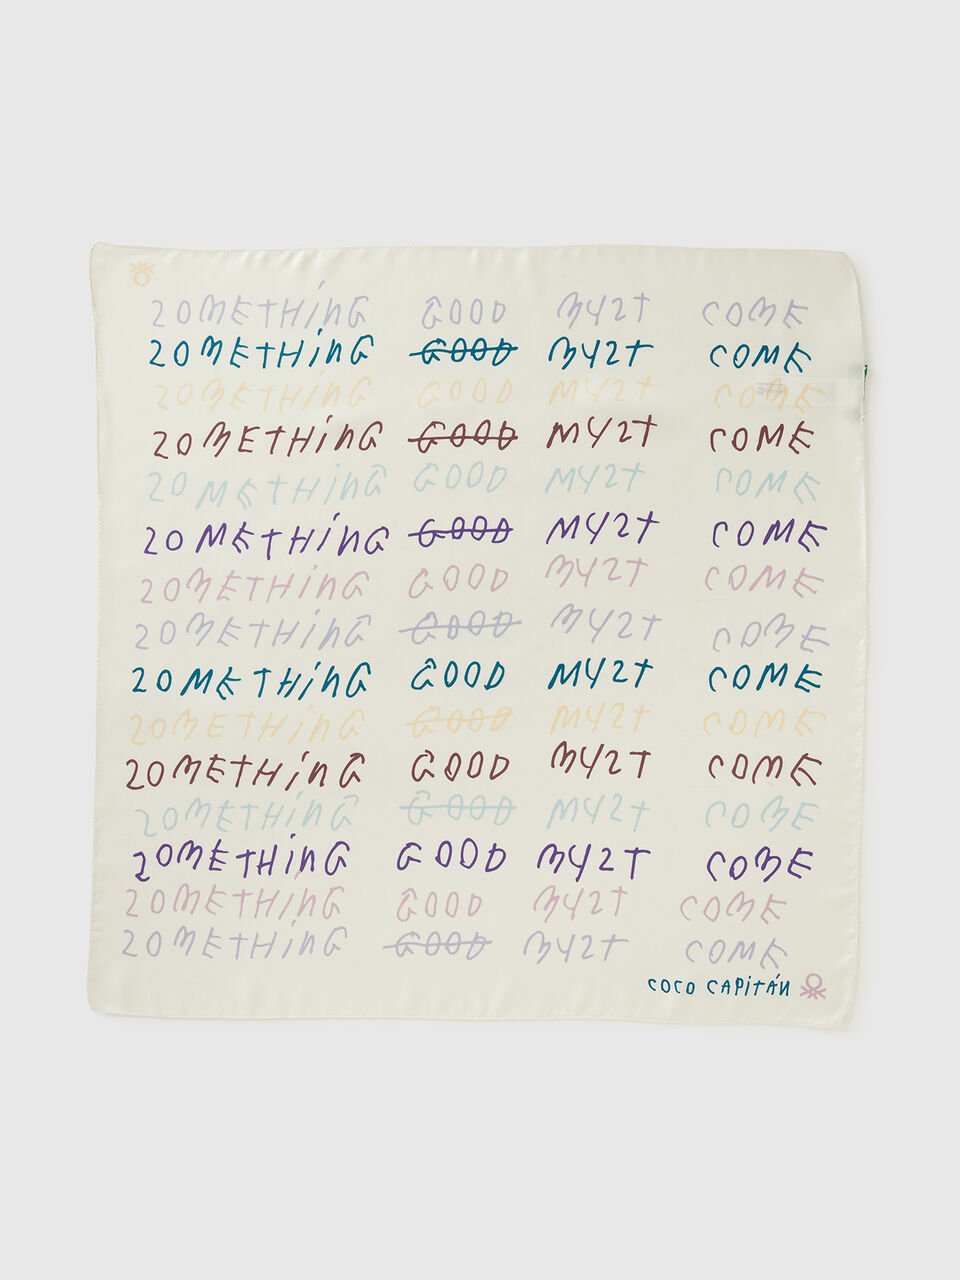 SOMETHING GOOD MUST COME
SOMETHING GOOD MUST COME
SOMETHING GOOD MUST COME
SOMETHING GOOD MUST COME
SOMETHING GOOD MUST COME
SOMETHING GOOD MUST COME
SOMETHING GOOD MUST COME
SOMETHING GOOD MUST COME
SOMETHING GOOD MUST COME
SOMETHING GOOD MUST COME
SOMETHING GOOD MUST COME
SOMETHING GOOD MUST COME
SOMETHING GOOD MUST COME
SOMETHING GOOD MUST COME
SOMETHING GOOD MUST COME
COCO CAPITÁN